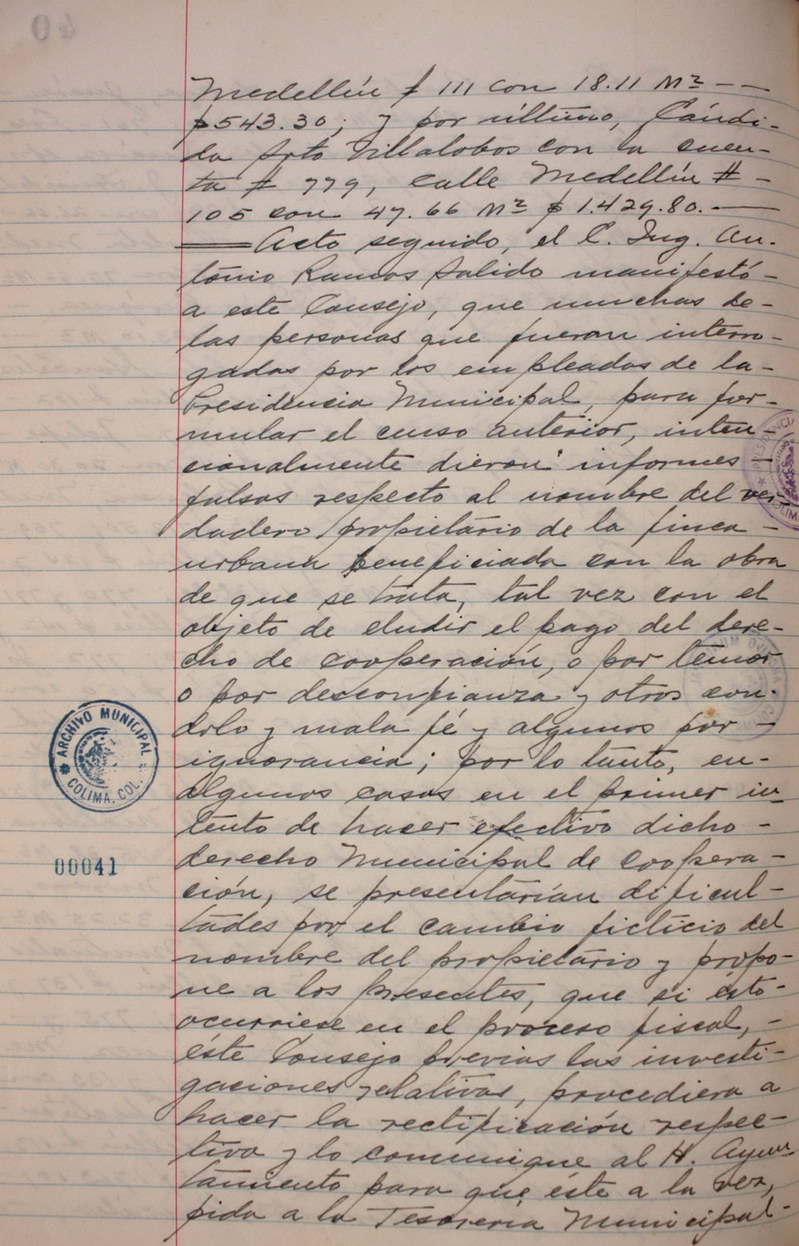 40
Medellín # 111 con 18.11 M² — —
$543.30; y por último, Cándi-
da Soto Villalobos con la cuen-
ta # 779, calle Medellín # -
105 con 47.66 M² $1.429.80. —
Acto seguido, el C. Ing. An-
tonio Ramos Salido manifestó -
a este Consejo, que muchas de -
las personas que fueron interro-
gadas por los empleados de la -
Presidencia Municipal, para for-
mular el censo anterior, inten-
cionalmente dieron informes -
falsos respecto al nombre del ver-
dadero propietario de la finca -
urbana beneficiada con la obra
de que se trata, tal vez con el
objeto de eludir el pago del dere-
cho de cooperación, o por temor
o por desconfianza y otros con -
dolo y mala fé y algunos por -
ignorancia; por lo tanto, en -
algunos casos en el primer in
tento de hacer efectivo dicho -
derecho Municipal de Coopera-
ción, se presentarían dificul-
tades por el cambio ficticio del
nombre del propietario y propo-
ne a los presentes, que si ésto -
ocurriese en el proceso fiscal, -
éste Consejo previas las investi-
gaciones relativas, procediera a
hacer la rectificación respec-
tiva y lo comunique al H. Ayun
tamiento para que éste a la vez,
pida a la Tesorería Municipal -
ARCHIVO MUNICIPAL
COLIMA, COL.
00041